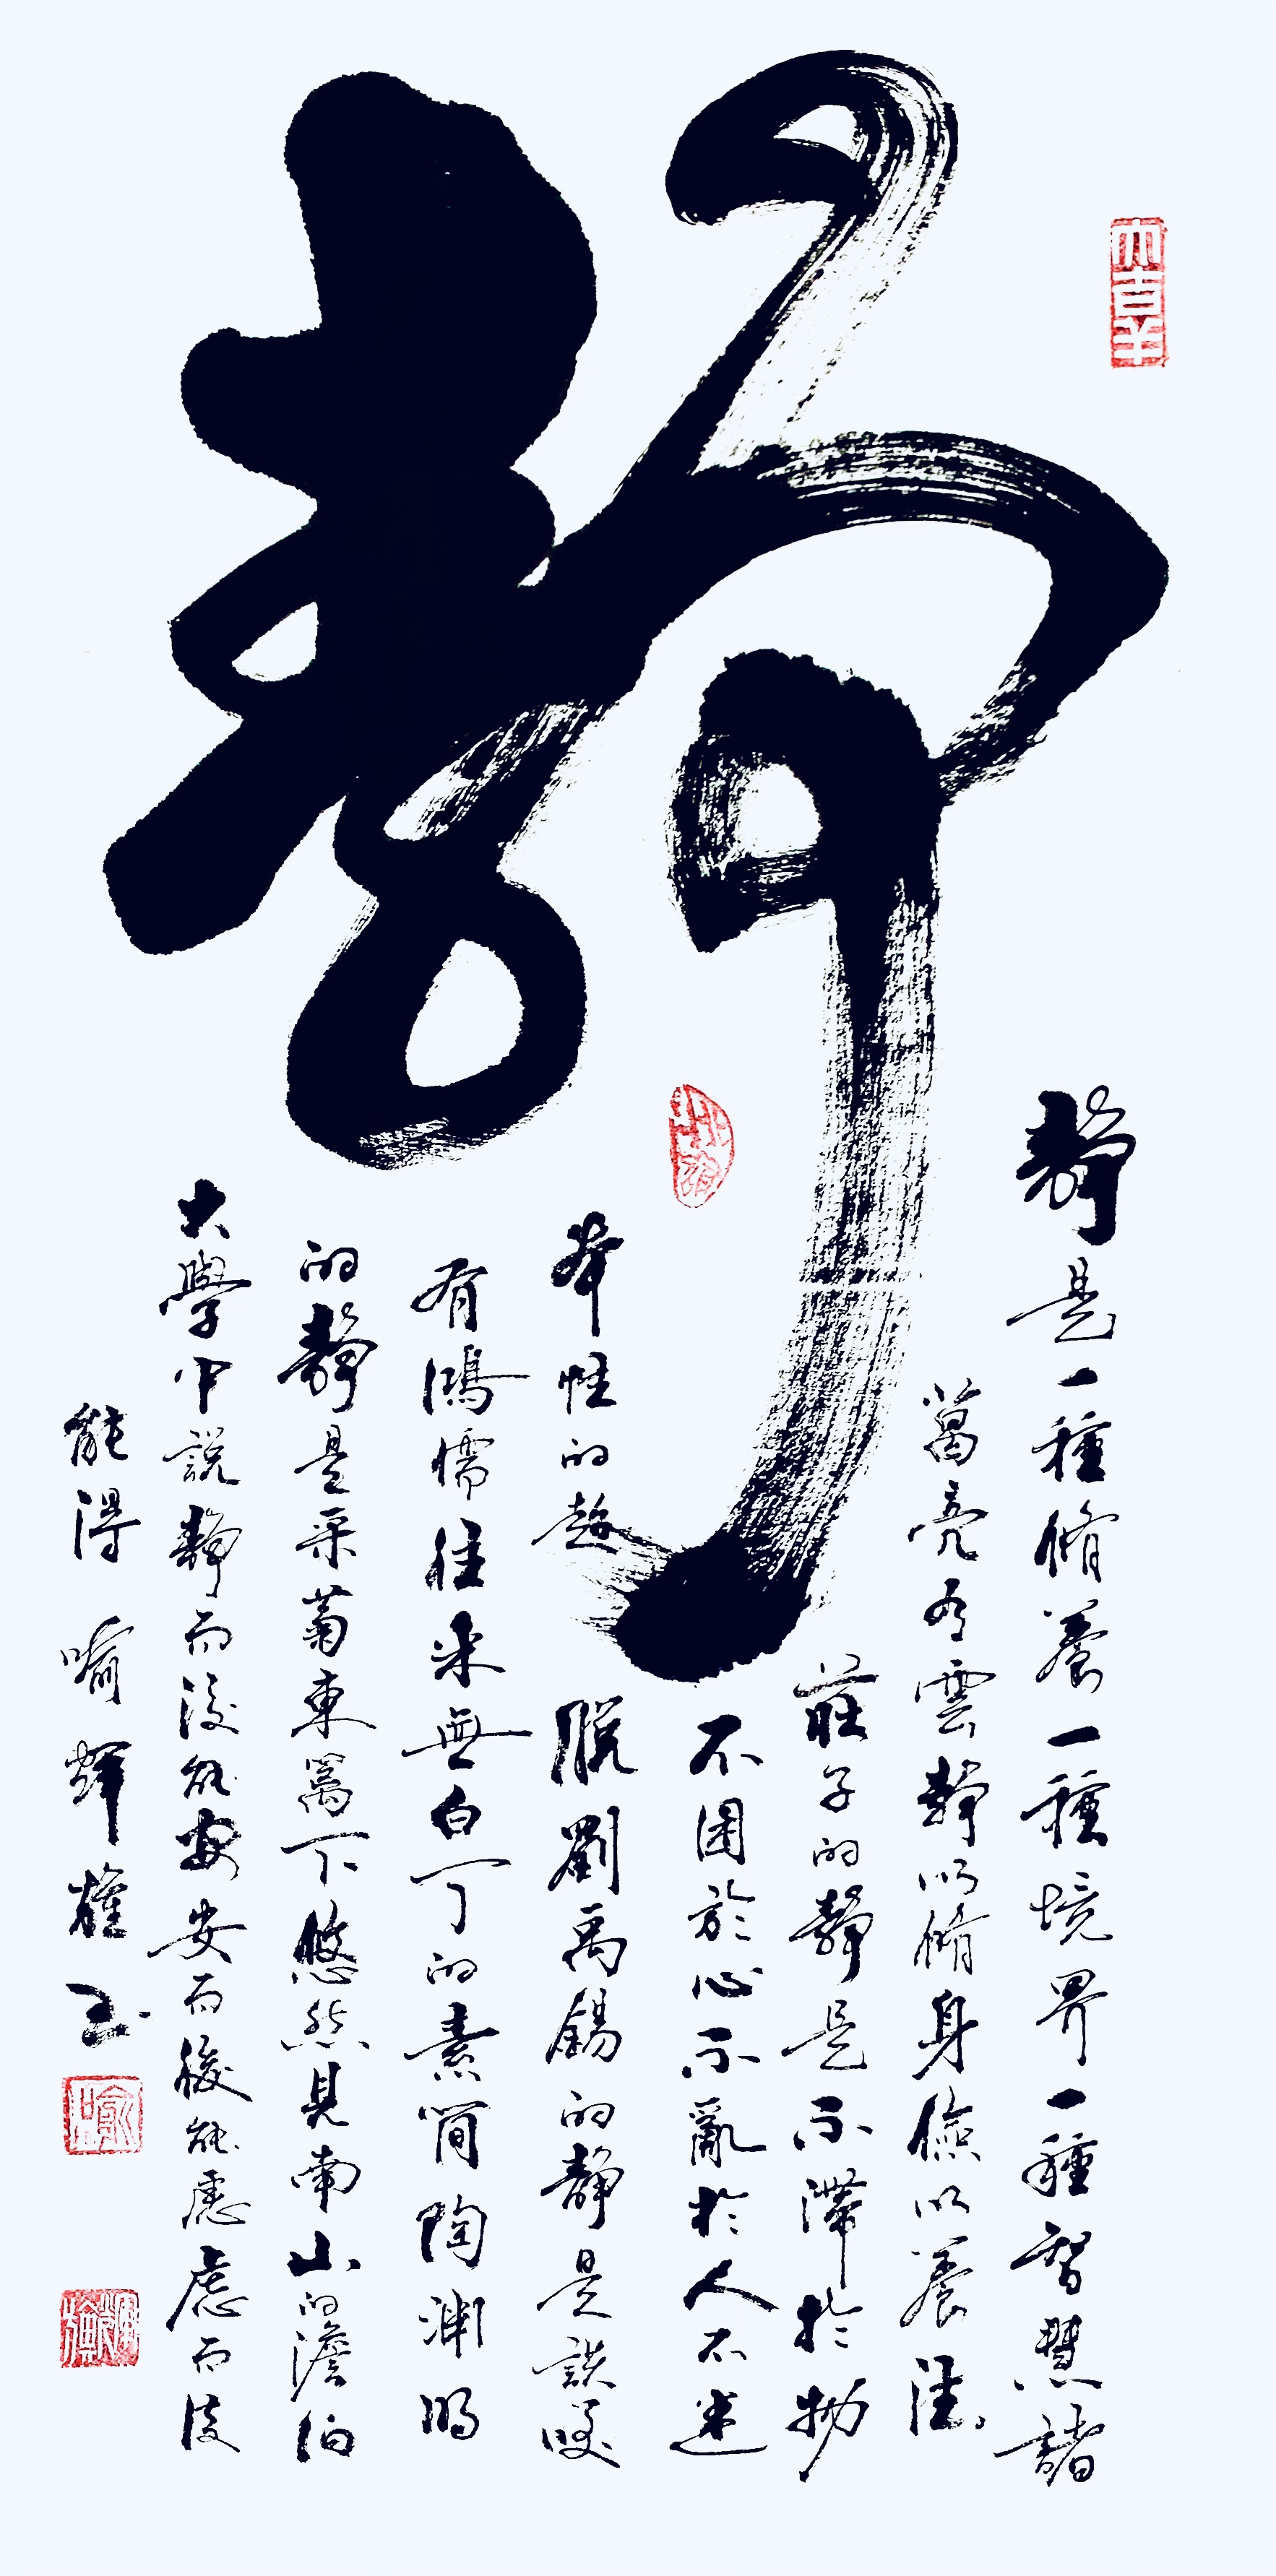 靜
大吉羊
靜是一種脩養一種境界一種智慧諸
葛亮有雲靜以脩身儉以養德
莊子的靜是不滯於物
不困於心不亂於人不迷
本性的超脫劉禹錫的靜是談笑
有鴻儒往來無白丁的素簡陶淵明
的靜是采菊東篱下悠然見南山的澹泊
大學中説靜而後能安安而後能慮慮而後
能得 喻輝權書